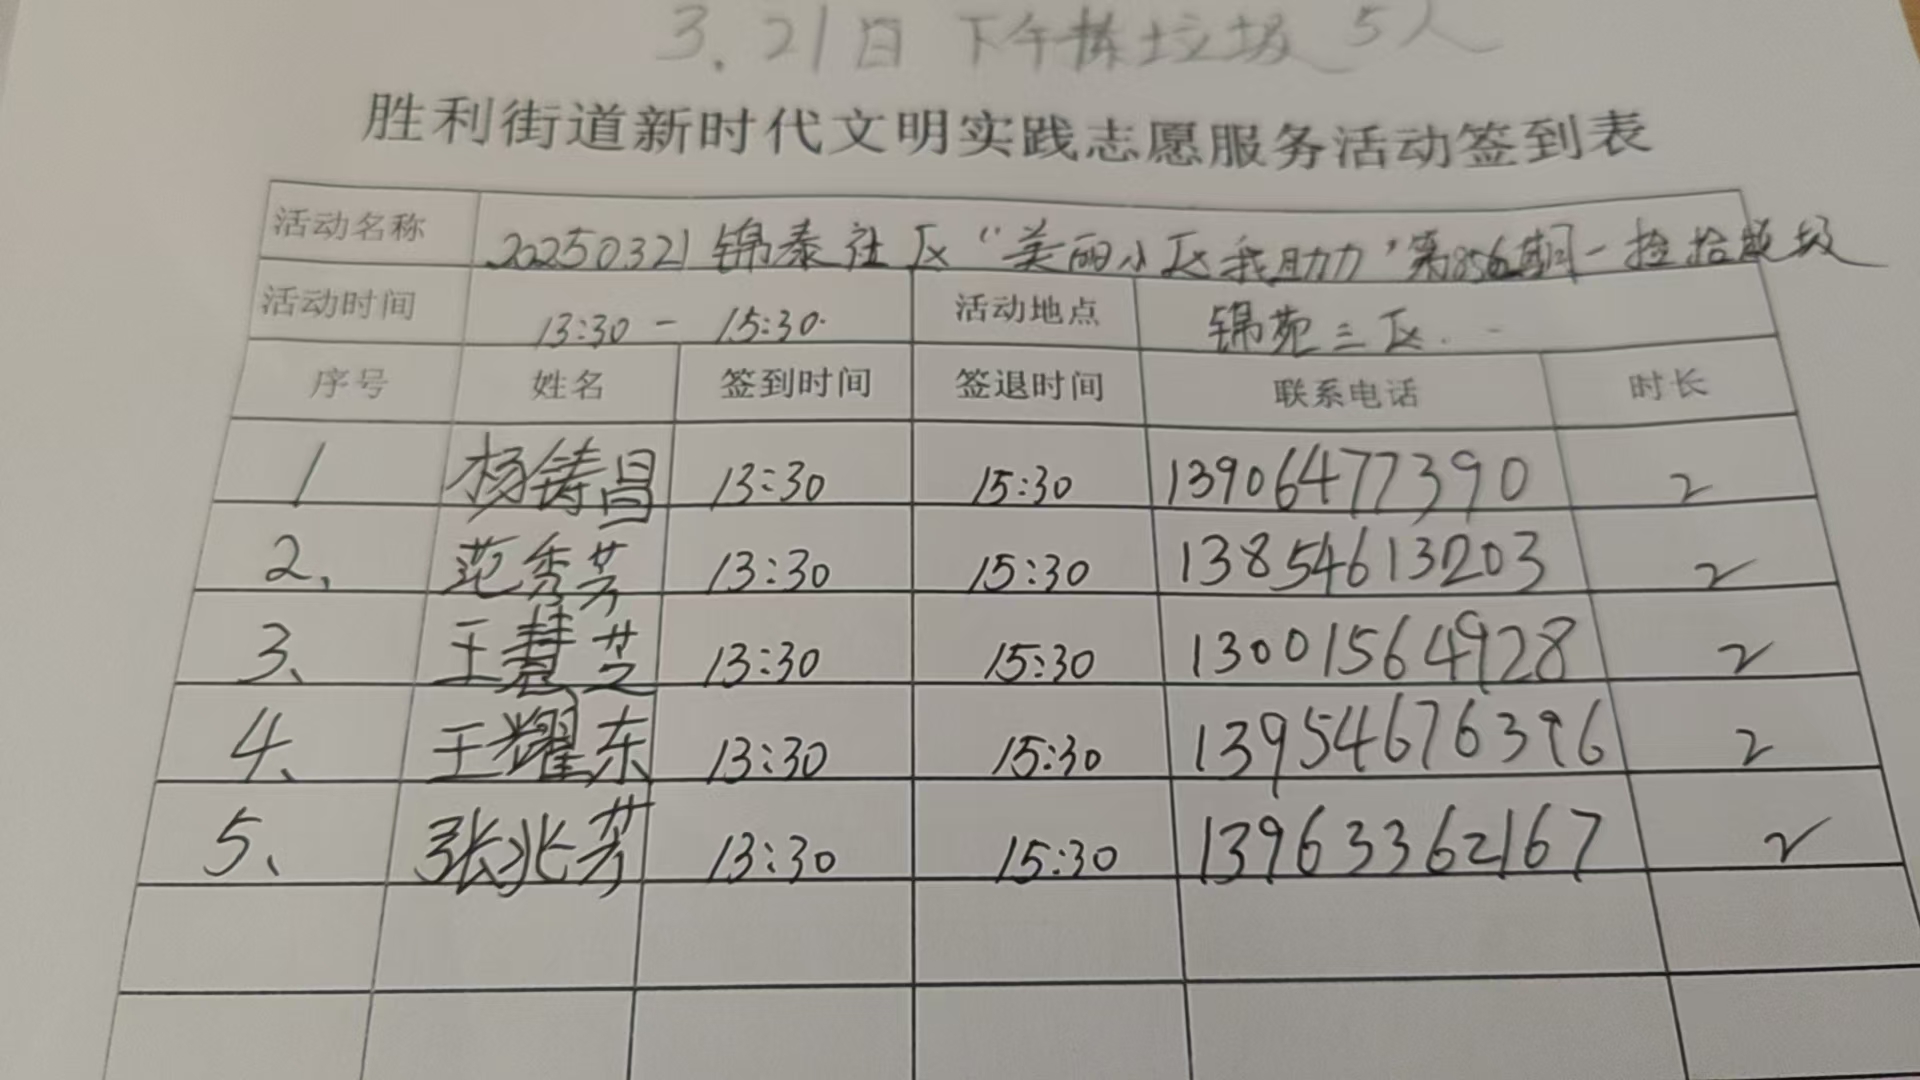 3.21日 下午拣垃圾 5人
胜利街道新时代文明实践志愿服务活动签到表
活动名称 20250321锦泰社区“美丽小区我助力”第856期-捡拾垃圾
活动时间 13:30 - 15:30. 活动地点 锦苑三区.
序号 姓名 签到时间 签退时间 联系电话 时长
1 杨铸昌 13:30 15:30 13906477390 2
2、 范秀芳 13:30 15:30 13854613203 2
3、 王慧芝 13:30 15:30 13001564928 2
4、 王耀东 13:30 15:30 13954676396 2
5、 张兆芳 13:30 15:30 13963362167 2